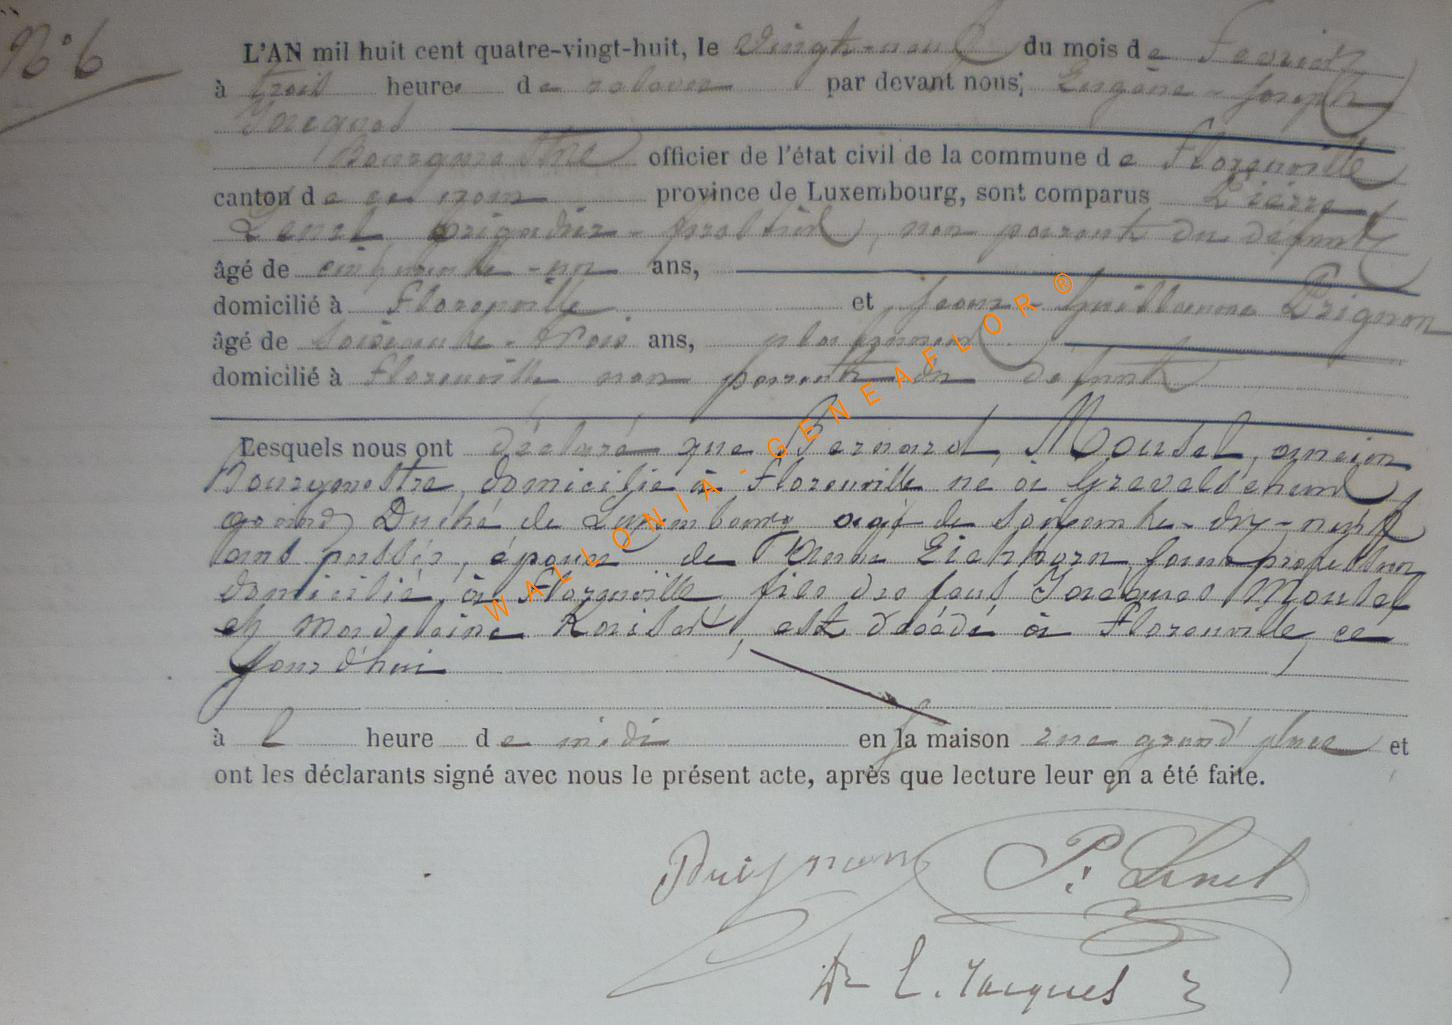 N° 6
L'AN mil huit cent quatre-vingt-huit, le vingt-neuf du mois de Fevrier
à trois heures de relevée par devant nous; Eugène-Joseph
Jacques
Bourgmestre officier de l'état civil de la commune de Florenville
canton de ce nom province de Luxembourg, sont comparus Pierre
Lenel, brigadier-forestier, non parent du defunt
âgé de cinquante-un ans,
domicilié à Florenville et Jean-Guillaume Prignon
âgé de soixante-trois ans, plafonneur
domicilié à Florenville non parent du defunt
Lesquels nous ont déclaré que Bernard Mousel, ancien
Bourgmestre, domicilié à Florenville né à Grevels'chend
grand Duché de Luxembourg agé de soixante-dix-neuf
ans passés, époux de Anna Eichhorn sans profession
domiciliée à Florenville, fils des feus Jacques Mousel
et Madelaine, est décédé à Florenville, ce
jour d'hui
à l heure de midi en la maison rue grand' place et
ont les déclarants signé avec nous le présent acte, après que lecture leur en a été faite.
Prignon P. Lenel
Dr E. Jacques
WALLONIA - GENEAFLOR ®